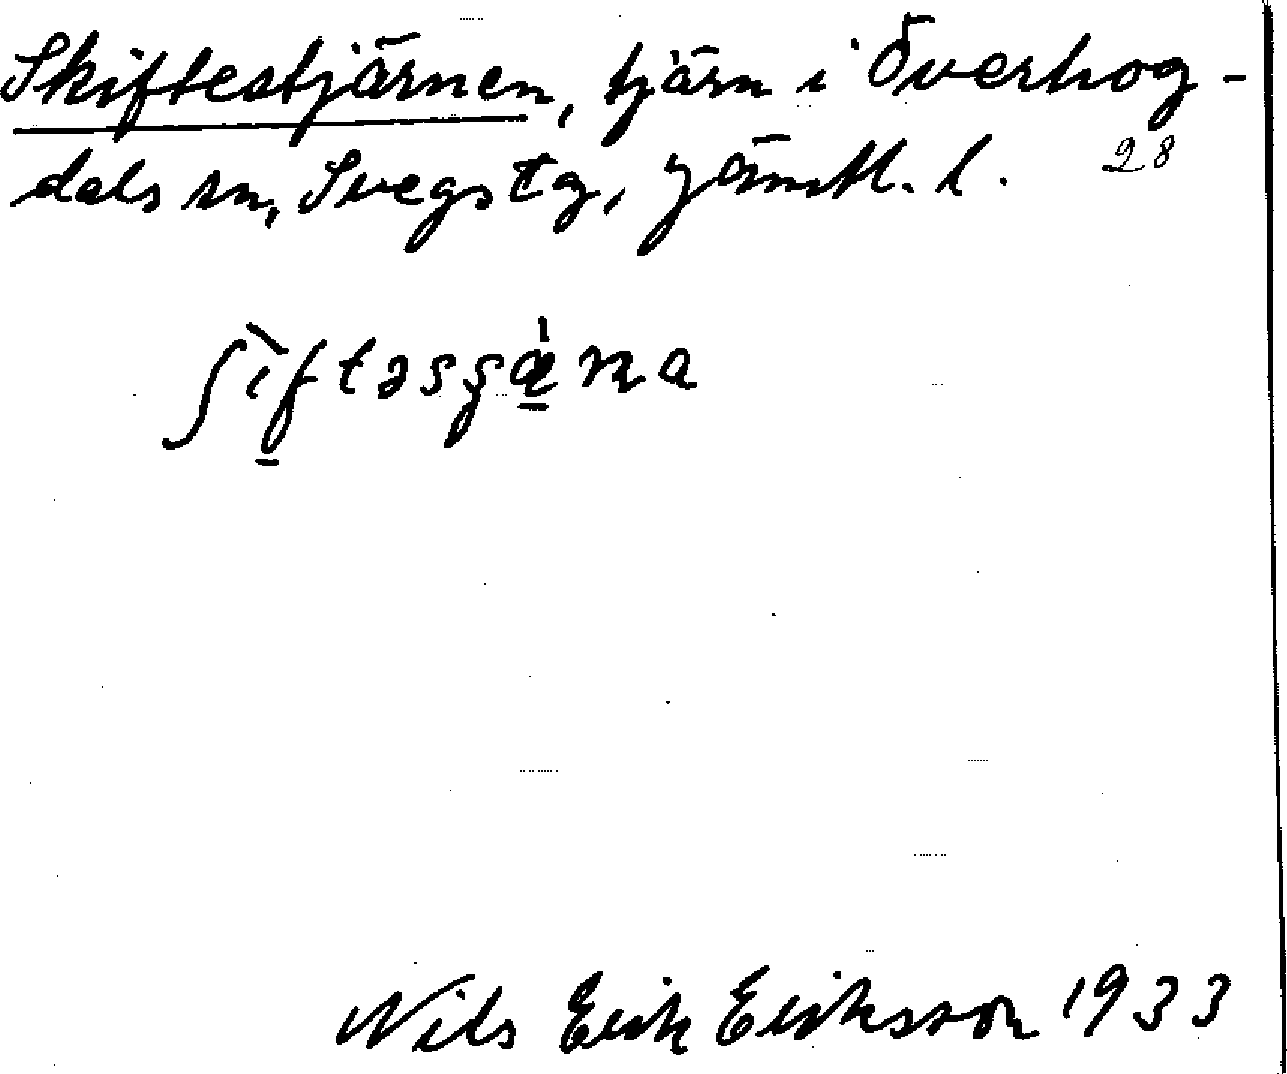 Skiftestjärnen, tjärn i Överhog-
dals sn, Svegs tg, Jämtl. l. 28
ʃìftəsʂæ̀na
Nils Erik Eriksson 1933